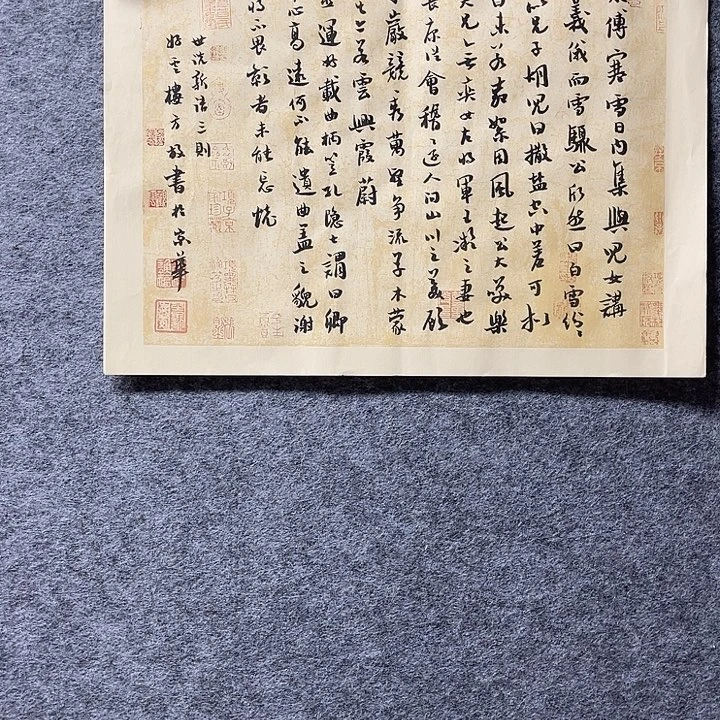 傅寒雪日內集與兒女講
義俄而雪驟公欣然曰白雪紛〻
似兄子胡兒曰撒鹽空中差可拟
曰未若柳絮因風起公大笑樂
大兄無奕女左將軍王凝之妻也
長康從會稽還人問山川之美顧
巖競秀萬壑爭流草木蒙
上若雲興霞蔚
運好戴曲柄笠孔隱士謂曰卿
心高遠何不能遺曲蓋之貌謝
將不畏影者未能忘懷
世說新語三則
樓方書於京華